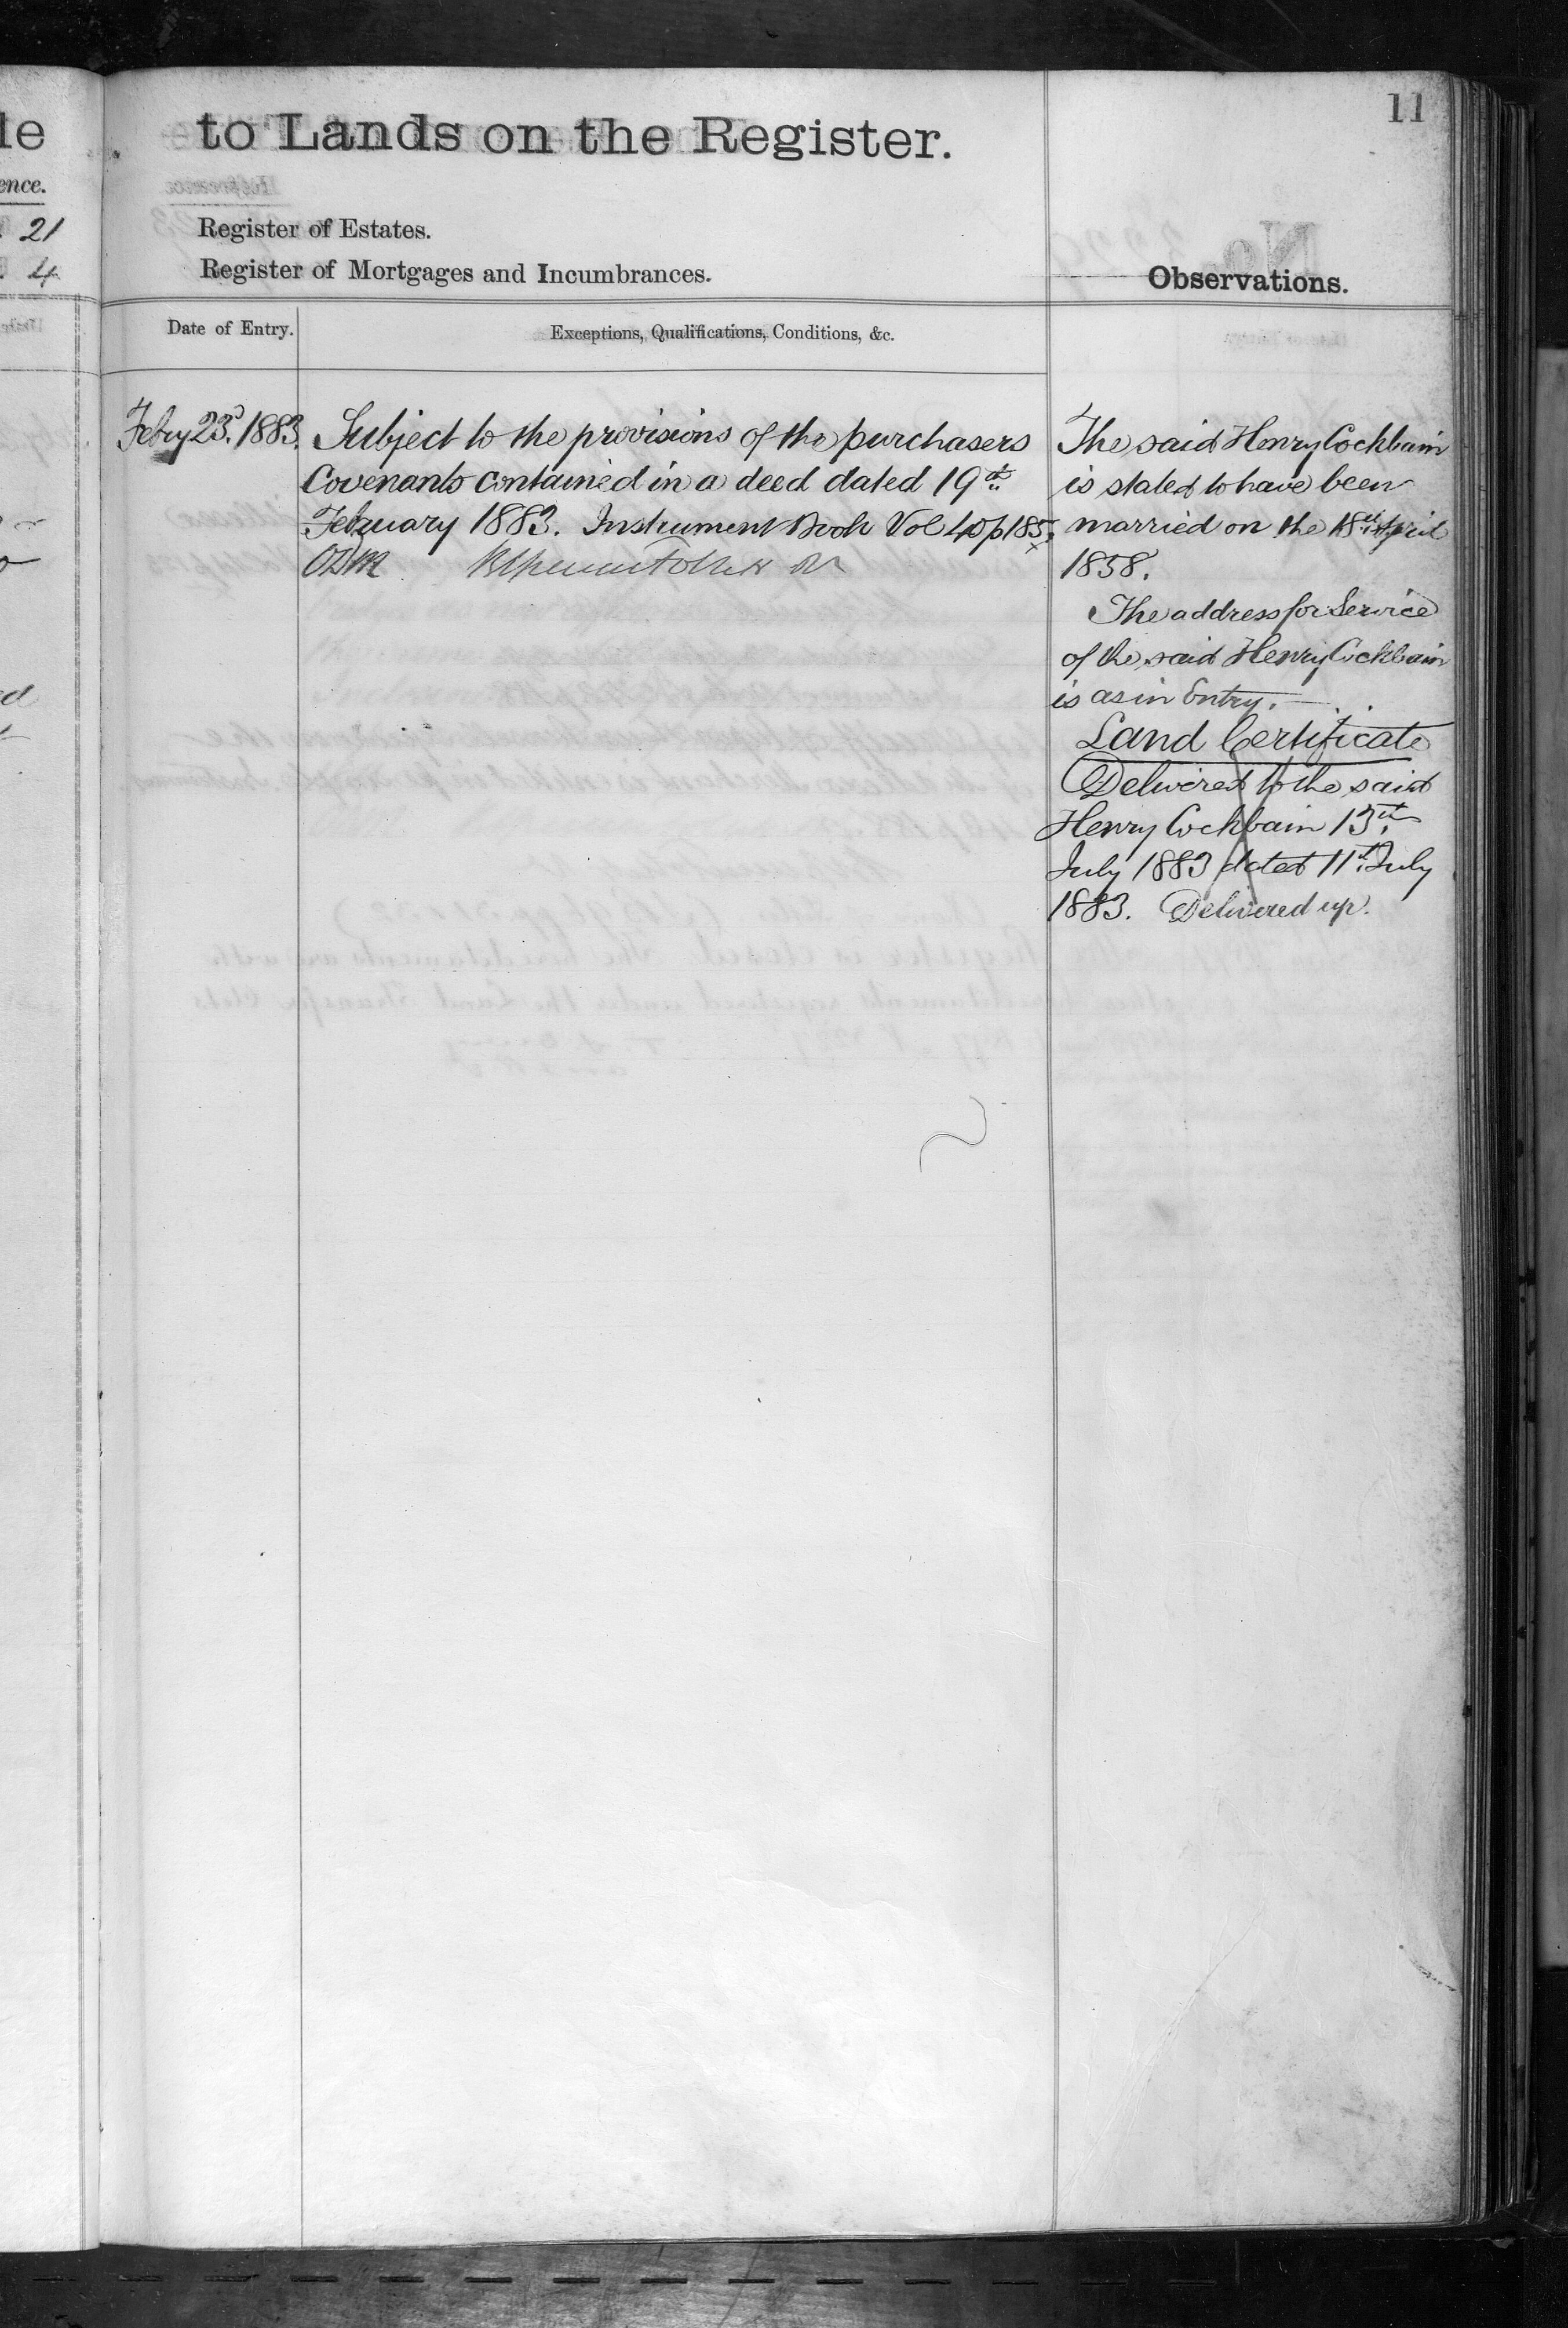 11
le
to Lands on the Register.
ence.
21
4
Register of Estates.
Register of Mortgages and Incumbrances.
Observations.
Date of Entry.
Exceptions, Qualifications, Conditions, &c.
Febry 23d. 1883.
Subject to the provisions of the purchasers
Covenants contained in a deed dated 19th
February 1883. Instrument Book Vol 40 p 185.
ODM
The said Henry Cockbain
is stated to have been
married on the 18th April
1858.
The address for Service
of the said Henry Cockbain
is as in Entry.
Land Certificate
Delivered to the said
Henry Cockbain 13th
July 1883 dated 11th July
1883. Delivered up.